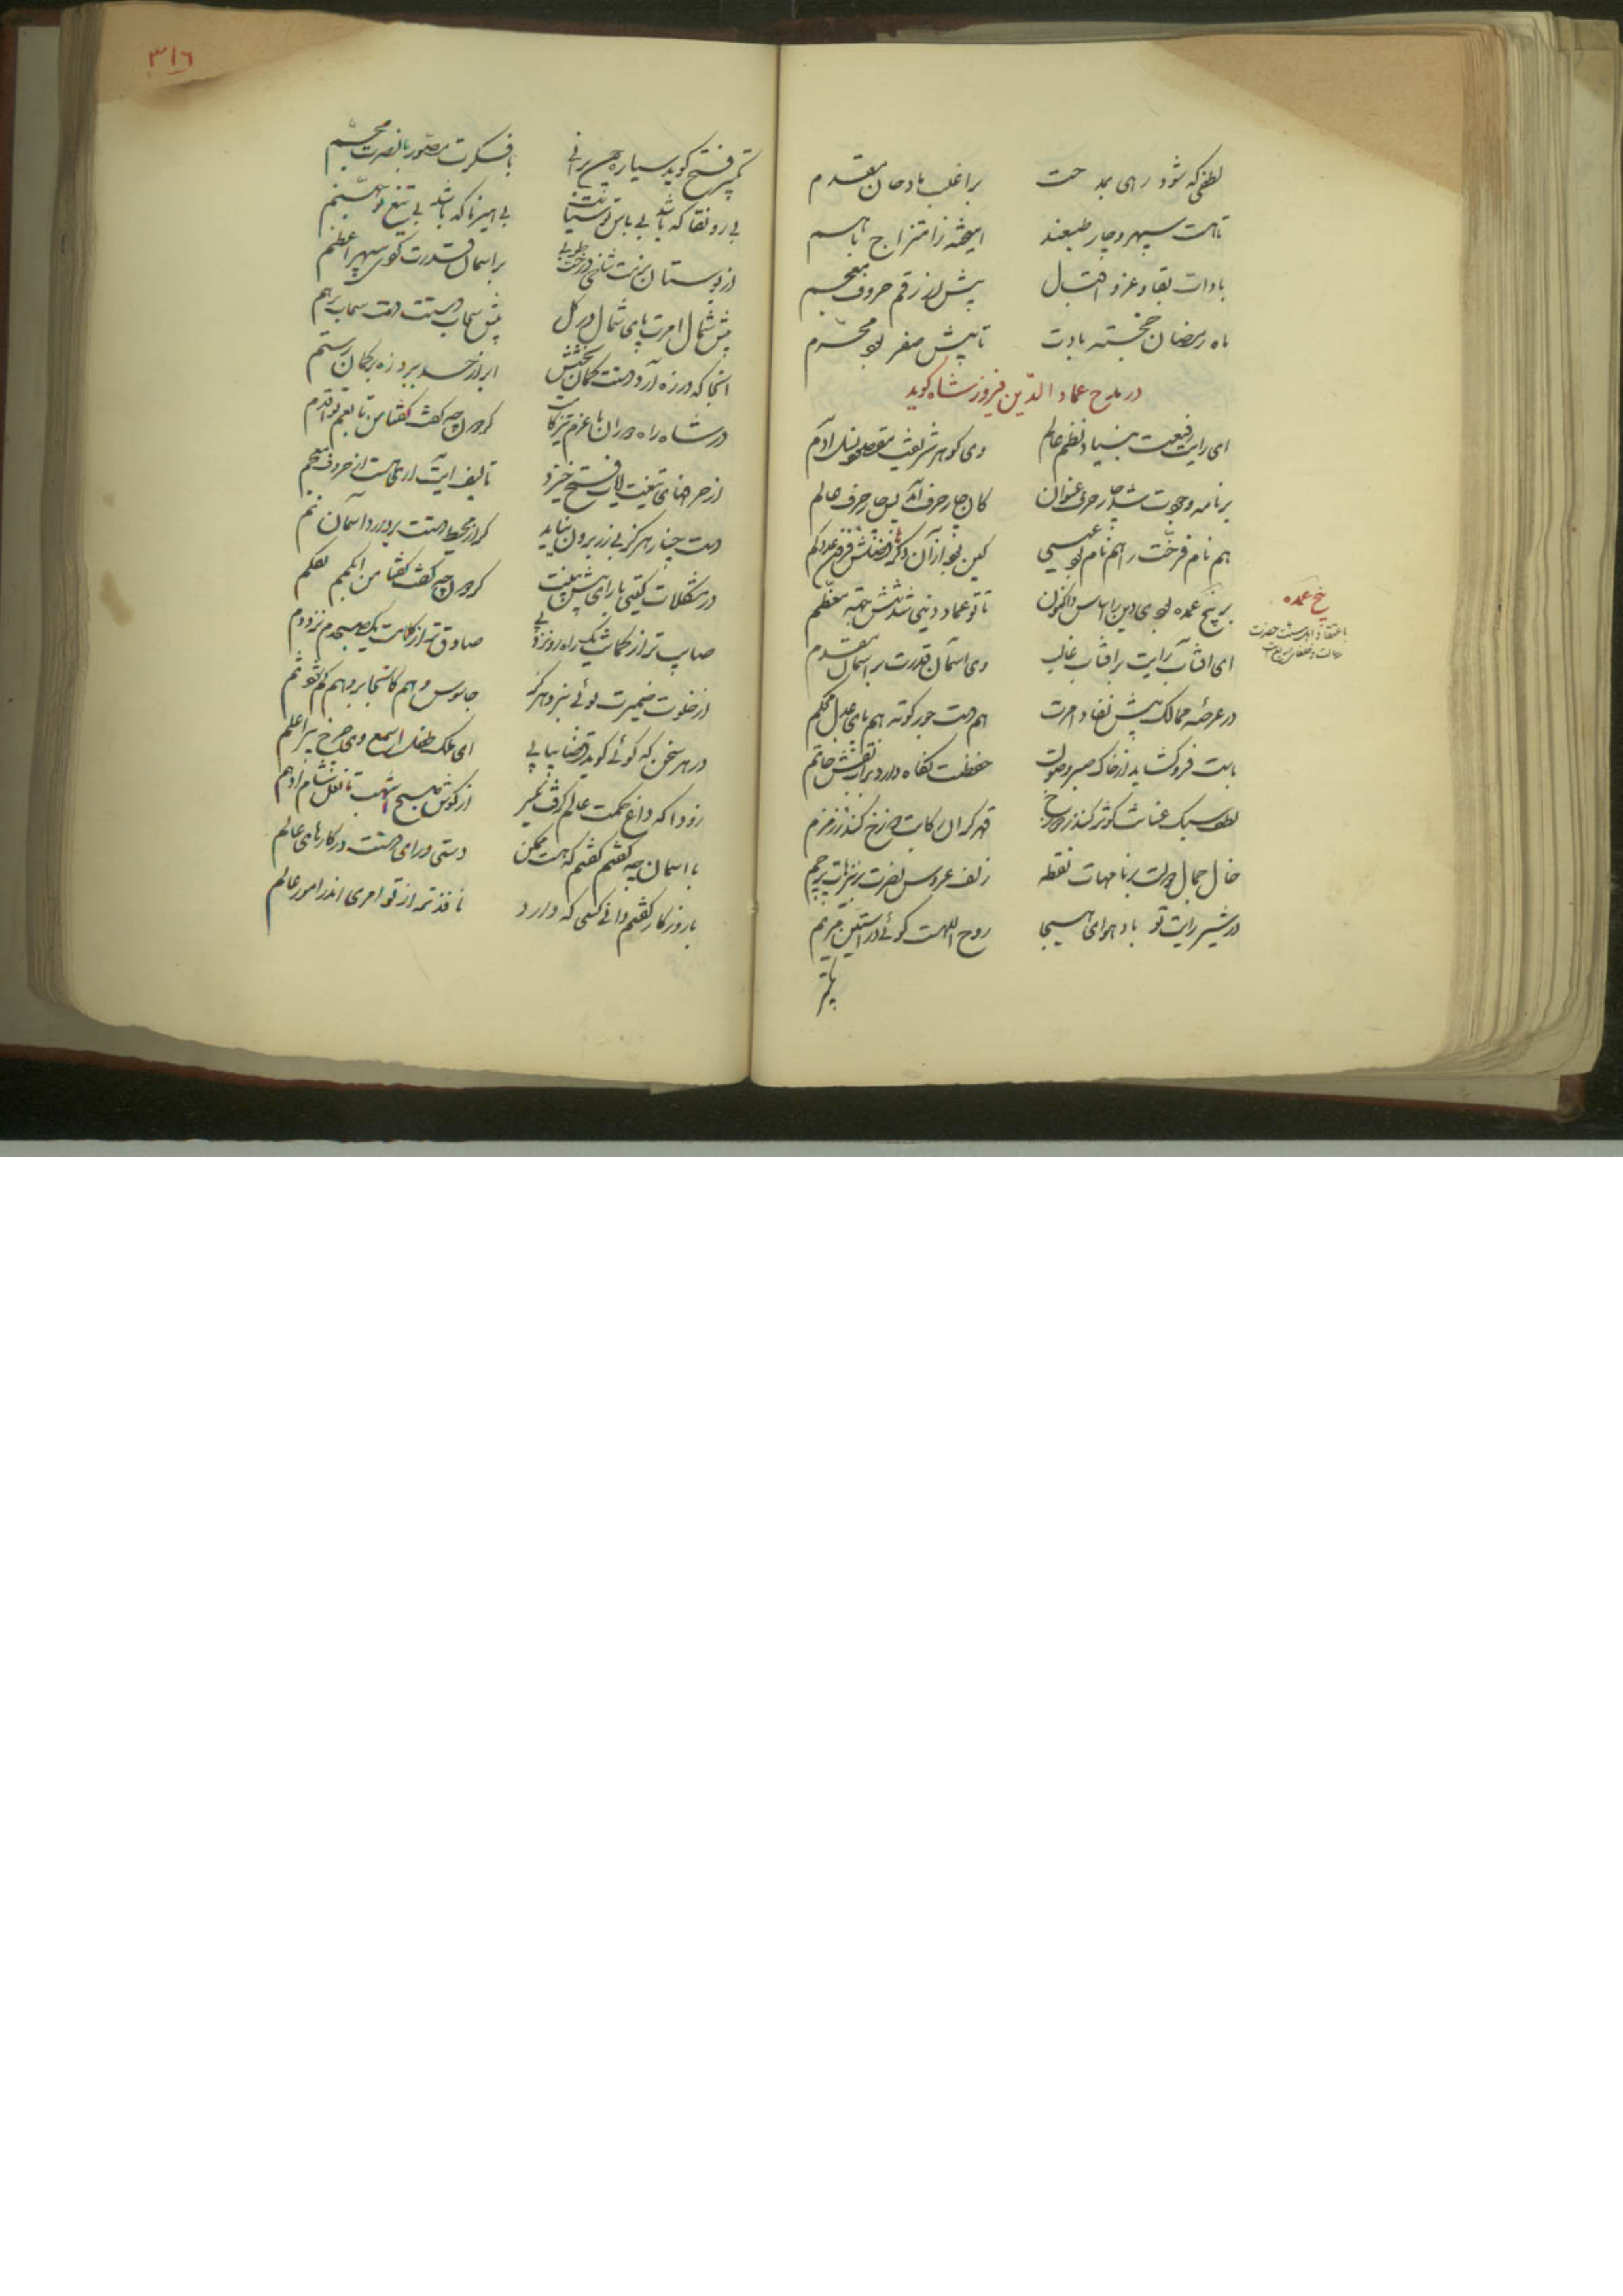 لطفی که شود رهی بمدحت براغلب مادحان مقدم
تاهست سپهر و چار طبعند آمیخته ز امتزاج باهم
بادات بقا و عز و اقبال پیش از رقم حروف معجم
ماه رمضان خجسته بادت تا پیش صفر بود محرّم
در مدح عماد الدّین فیروز شاه گوید
ای رایت رفیعت بنیاد نظم عالم وی گوهر شریفت مقصود نسل آدم
بر نامه وجودت شد چار حرف عنوان کان چار حرف آمد پس چار حرف عالم
هم نام فرخت را هم نام بود عیسی کین بود از آن دگر
بر پنج عمده بودی دین را اساس و اکنون تا تو عماد دینی شد شش همه معظم
پنج عمده
باعتقاد اهل سنت حضرت
رسالت و خلفای
ای آفتاب رایت بر آفتاب غالب وی آسمان قدرت بر آسمان مقدم
در عرصه ممالک پیش نفاد امرت هم دست جور کوته هم پای عدل محکم
بأست فروگشاید از خاک صبر و صولت حفظت نگاه دارد بر آب نقش خاتم
لطف سبک عنانت کوثر کند ز دوزخ قهر گران رکابت دوزخ کند ز زمزم
خال جمال دولت بر نامهات نقطه زلف عروس نصرت بر نیزهات پرچم
در شیر رایت تو باد هوای هیجا روح اللهست گوئی در آستین مریم
یا تیر
٣١٦
تکبیر فتح گوید سیاره چون برانی با فکرت مصوّر با نصرت مجسّم
بی رونقا که باشد بی باس تو سیاست بی هیزما که باشد بی تیغ تو جهنم
از بوستان بزمت شاخی درخت طوبی بر آسمان قدرت گوی سپهر اعظم
پیش شمال امرت پای شمال در گل پیش سحاب دستت دست سحاب برهم
آنجا که در زه آرد دستت کمان بخشش ابر از حسد ببرد زه بر کمان رستم
در شاه راه دوران با عزم تیز گامت گردون چه گفت گفتا من تابعم تو اقدم
از حرفهای تیغت آیات فتح خیزد تالیف آیت آری هست از حروف معجم
دست چنار هرگز بی زر برون نیاید گر از محیط دستت بر دارد آسمان نم
در مشکلات گیتی با رای پیش بینت گردون چه گفت گفتا من ابکمم تکلم
صایب تر از کمانت یک راه رو نزد پی صادق تر از کلامت یک صبحدم نزد دم
از خلوت ضمیرت بوئی نبرد هرگز جاسوس وهم کانجا بر وهم گم شود شم
در هر سخن که گوئی گوید قضا پیاپی ای ملک طفل اسمع وی چرخ پیر اعلم
زودا که داغ حکمت عالم گرفت یکسر از گوش صبح اشهب تا نعل شام ادهم
با آسمان چه گفتم گفتم که هست ممکن دستی ورای دستت در کارهای عالم
با روزگار گفتم دانی کسی که دارد نافذتر از تو امری اندر امور عالم